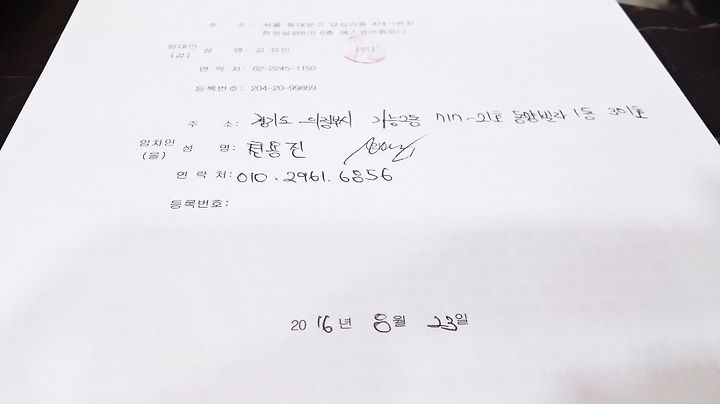 주 소: 서울 동대문구 답십리동 424-1번지
한성빌딩 6층
임대인 성 명: 김 유민 (인)
(갑)
연 락 처: 02-2245-1150
등록번호: 204-20-99869
주 소: 경기도 의정부시 가능2동 1동 301호
임차인 성 명: 용진
(을)
연 락 처: 010. 2961. 6856
등록번호:
2016년 8월 23일